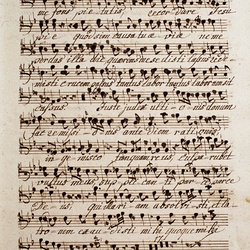 me fons pie tatis recor dare Jesu
pie quod sum causa tuæ viæ ne me
perdas illa die quærens me se disti lassus rede
misti crucem passus tantus labor tantus labor non sit
cassus Juste judex ulti o nis donum
fac re missi o nis ante diem rationis
in ge misco tanquam reus culpa rubet
vultus meus sup pli can ti par ce parce
De us qui Mari am absol visti et la
tro nem ex au disti mihi quoque mihi